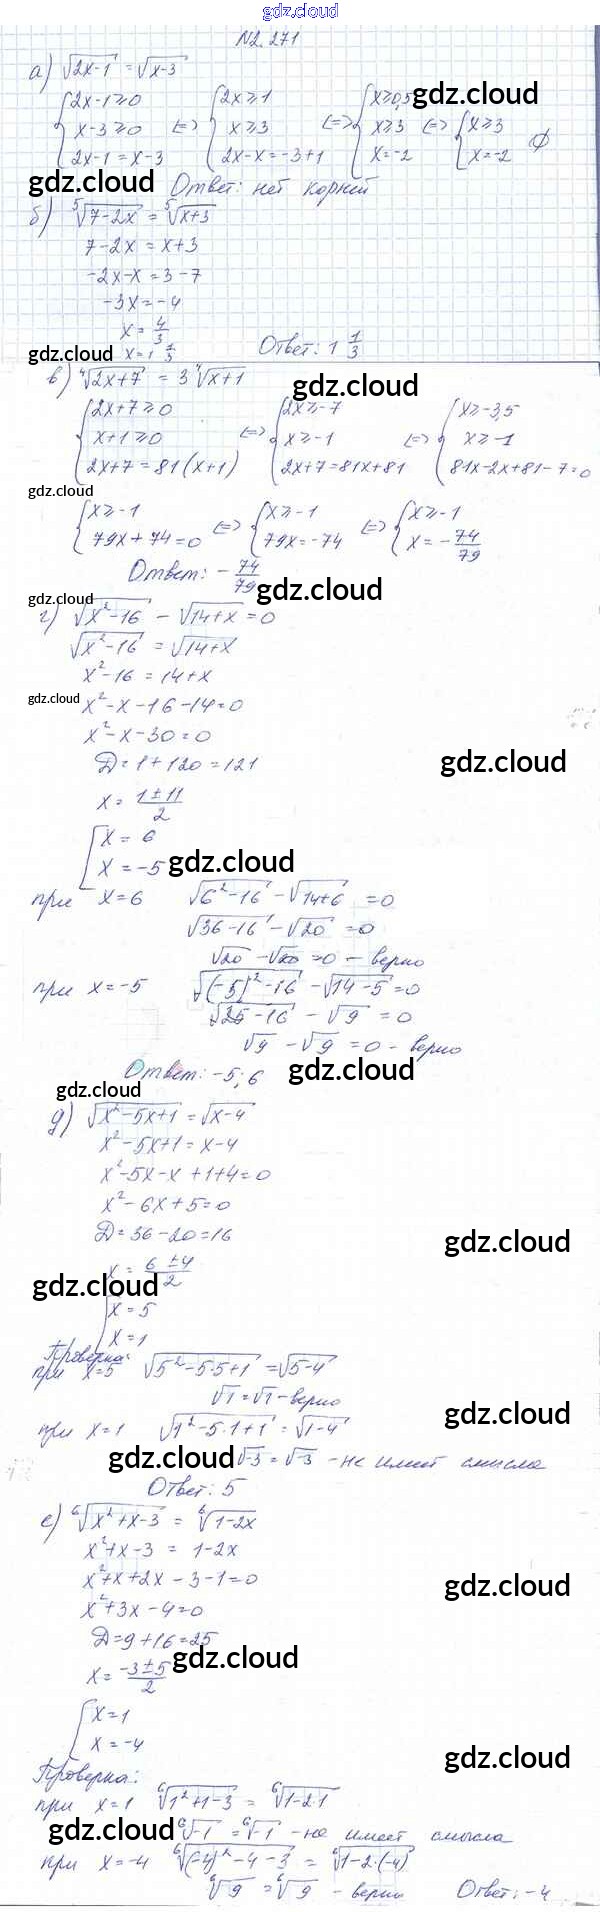 gdz.cloud
gdz.cloud
N2.271
а) √(2x-1) = √(x-3)
{2x-1≥0 {2x≥1 {x≥0,5 gdz.cloud
{x-3≥0 <=> {x≥3 <=> {x≥3 <=> {x≥3 Ø
{2x-1=x-3 {2x-x=-3+1 {x=-2 {x=-2
gdz.cloud Ответ: нет корней
б) ⁵√(7-2x) = ⁵√(x+3)
7-2x = x+3
-2x-x = 3-7
-3x = -4
x = 4/3
gdz.cloud x = 1 1/3 Ответ: 1 1/3
в) ⁴√(2x+7) = 3 ⁴√(x+1) gdz.cloud
{2x+7≥0 {2x≥-7 {x≥-3,5
{x+1≥0 <=> {x≥-1 <=> {x≥-1
{2x+7=81(x+1) {2x+7=81x+81 {81x-2x+81-7=0
gdz.cloud
{x≥-1 <=> {x≥-1 <=> {x≥-1
{79x+74=0 {79x=-74 {x=-74/79
Ответ: -74/79 gdz.cloud
gdz.cloud
г) √(x²-16) - √(14+x) = 0
√(x²-16) = √(14+x)
x²-16 = 14+x
gdz.cloud x²-x-16-14=0
x²-x-30=0
D=1+120=121 gdz.cloud
x = (1±11)/2
[x = 6
[x = -5 gdz.cloud
при x=6 √(6²-16) - √(14+6) = 0
√(36-16) - √20 = 0
√20 - √20 = 0 - верно
при x=-5 √((-5)²-16) - √(14-5) = 0
√(25-16) - √9 = 0
√9 - √9 = 0 - верно
Ответ: -5; 6 gdz.cloud
gdz.cloud
д) √(x²-5x+1) = √(x-4)
x²-5x+1 = x-4
x²-5x-x+1+4=0
x²-6x+5=0
D=36-20=16 gdz.cloud
x = (6±4)/2
gdz.cloud
[x = 5
[x = 1
Проверка:
при x=5 √(5²-5·5+1) = √(5-4)
√1 = √1 - верно
gdz.cloud
при x=1 √(1²-5·1+1) = √(1-4)
gdz.cloud √-3 = √-3 - не имеет смысла
Ответ: 5
е) ⁶√(x²+x-3) = ⁶√(1-2x)
x²+x-3 = 1-2x
x²+x+2x-3-1=0 gdz.cloud
x²+3x-4=0
D=9+16=25
x = (-3±5)/2 gdz.cloud
[x=1
[x=-4 gdz.cloud
Проверка:
при x=1 ⁶√(1²+1-3) = ⁶√(1-2·1)
gdz.cloud ⁶√-1 = ⁶√-1 - не имеет смысла
при x=-4 ⁶√((-4)²-4-3) = ⁶√(1-2·(-4))
⁶√9 = ⁶√9 - верно Ответ: -4
gdz.cloud